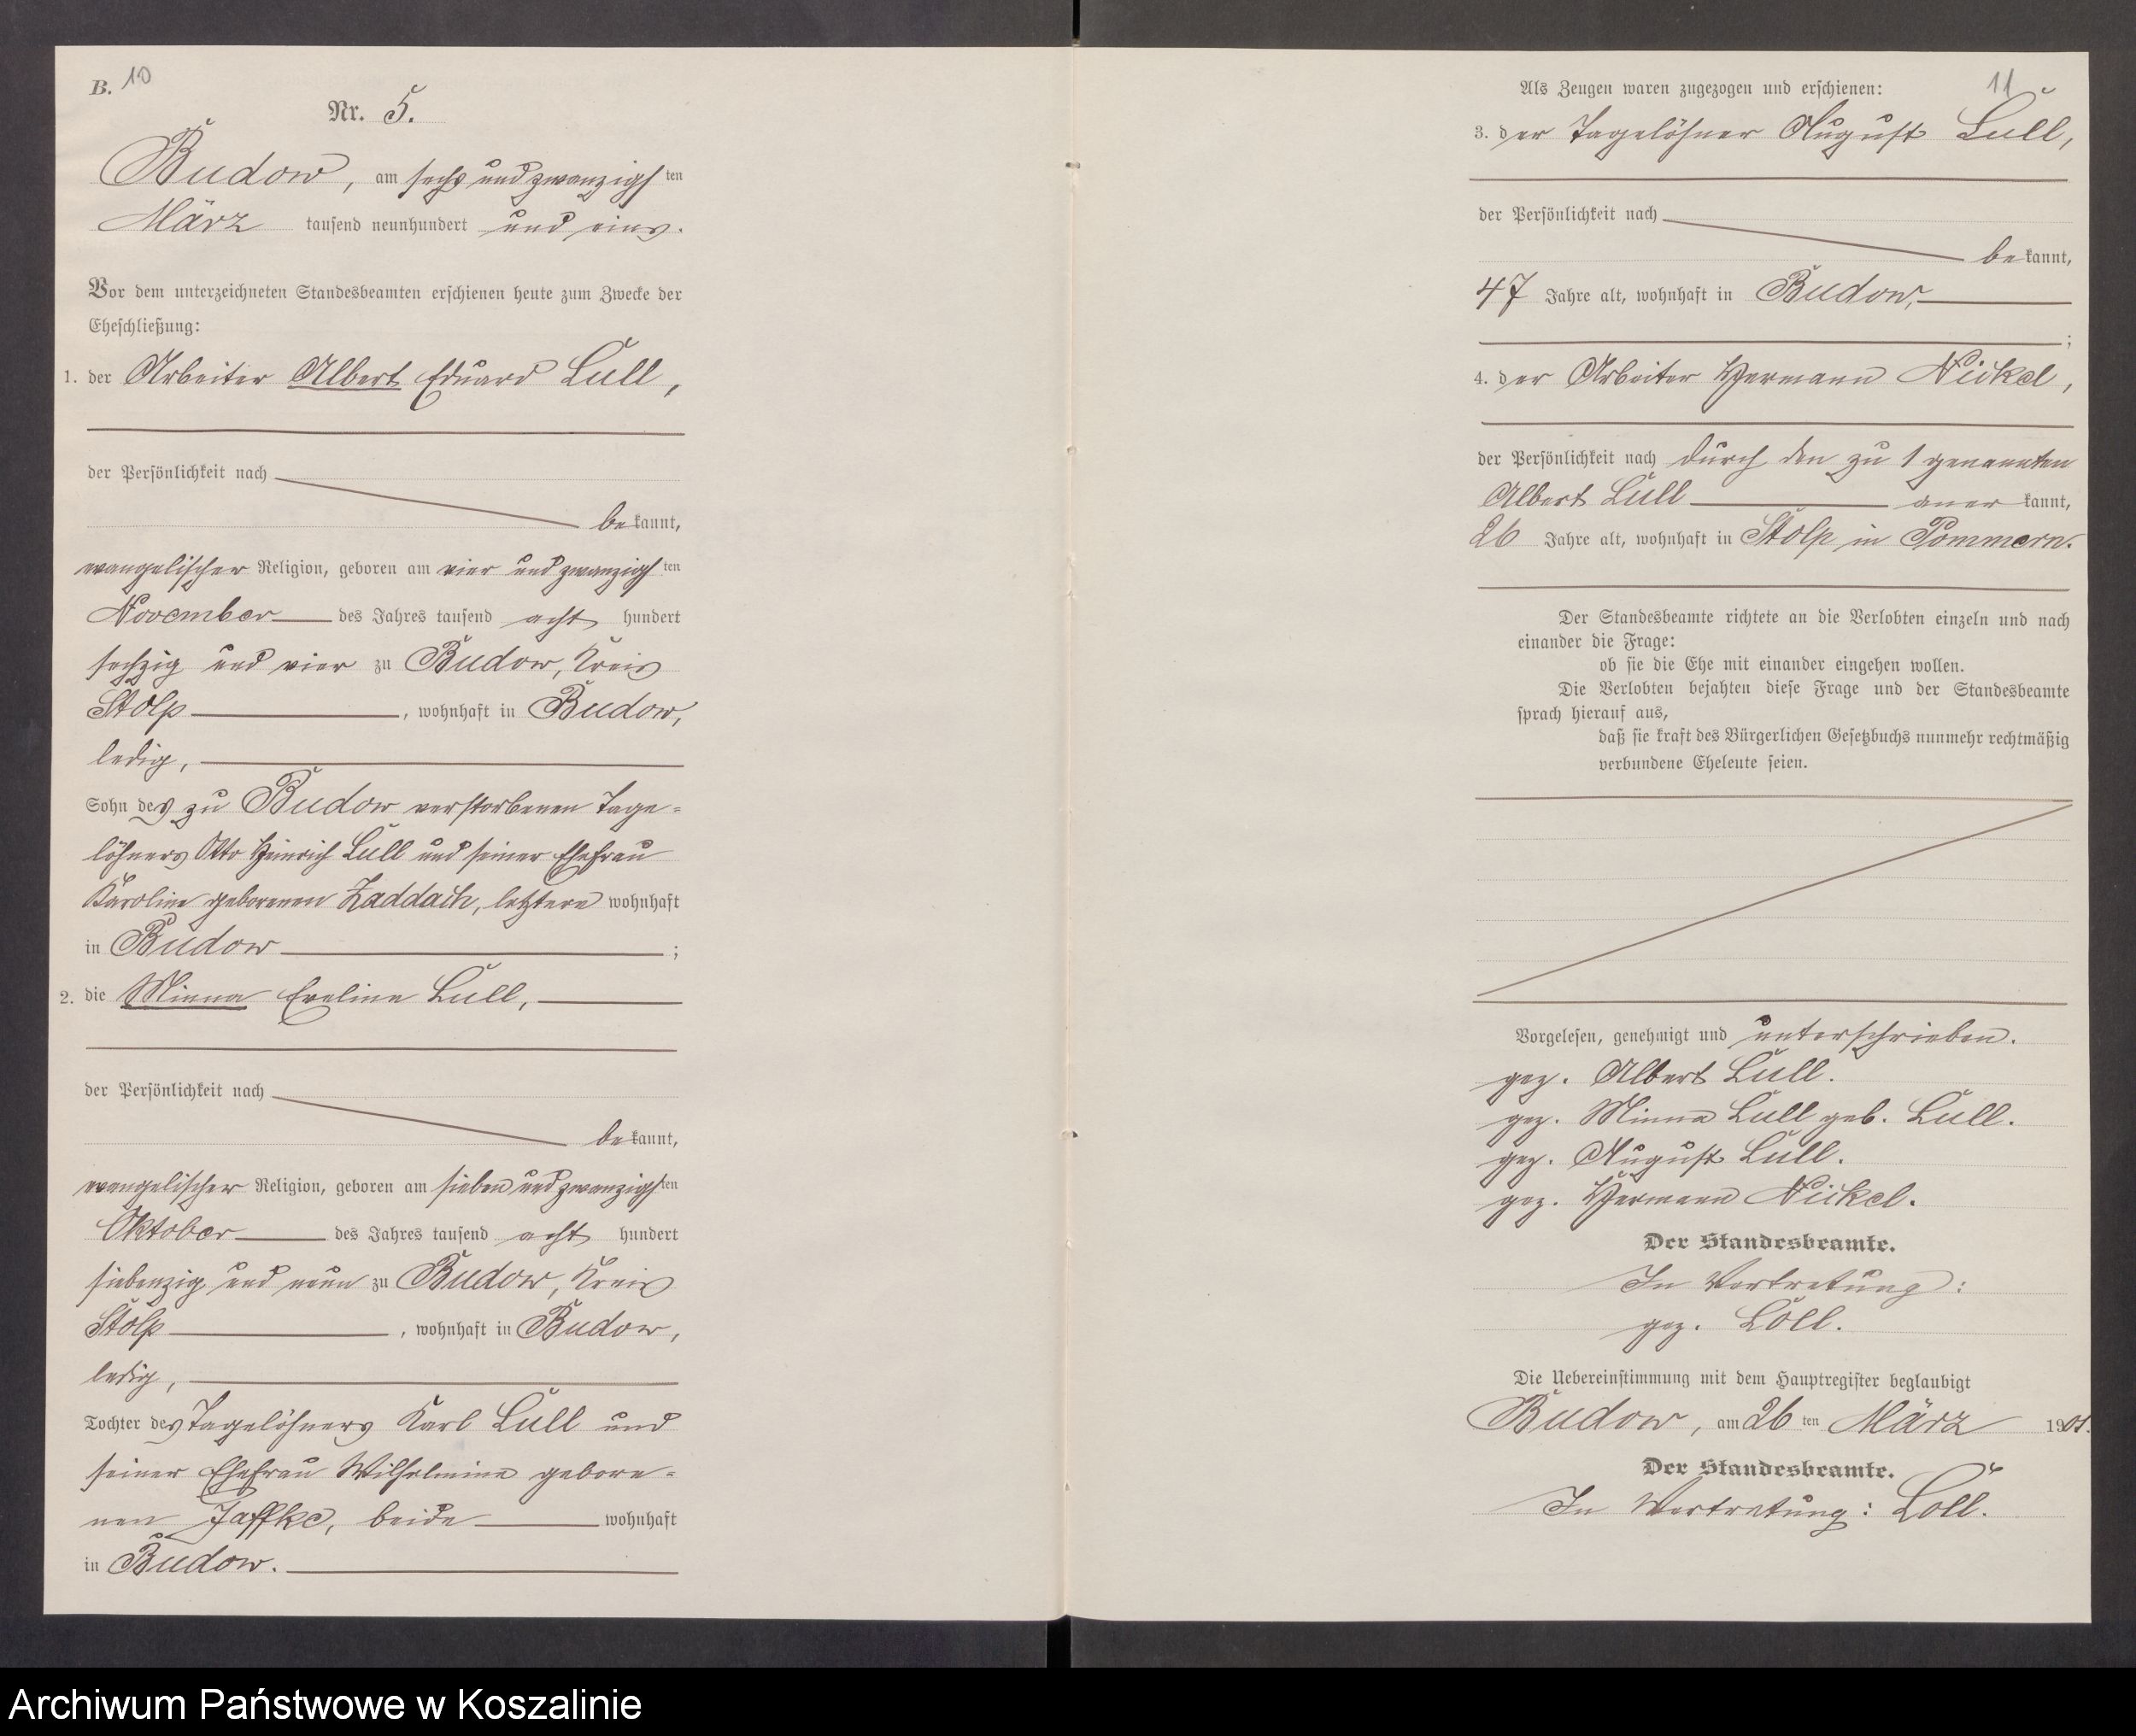 B. 10
Nr. 5.
Budow, am sechs und zwanzigsten
März tausend neunhundert und eins.
Vor dem unterzeichneten Standesbeamten erschienen heute zum Zwecke der
Eheschließung:
1. der Arbeiter Albert Eduard Lüll,
der Persönlichkeit nach
bekannt,
evangelischer Religion, geboren am vier und zwanzigsten
November des Jahres tausend acht hundert
sechzig und vier zu Budow, Kreis
Stolp, wohnhaft in Budow,
ledig,
Sohn des zu Budow verstorbenen Tage-
löhners Otto Heinrich Lüll und seiner Ehefrau
Karoline geborenen Zaddach, letztere wohnhaft
in Budow;
2. die Minna Eveline Lüll,
der Persönlichkeit nach
bekannt,
evangelischer Religion, geboren am sieben und zwanzigsten
Oktober des Jahres tausend acht hundert
siebenzig und neun zu Budow, Kreis
Stolp, wohnhaft in Budow,
ledig,
Tochter des Tagelöhners Karl Lüll und
seiner Ehefrau Wilhelmine gebore-
nen Jaffke, beide wohnhaft
in Budow.
11
Als Zeugen waren zugezogen und erschienen:
3. der Tagelöhner August Lüll,
der Persönlichkeit nach
bekannt,
47 Jahre alt, wohnhaft in Budow,
;
4. der Arbeiter Hermann Nickel,
der Persönlichkeit nach durch den zu 1 genannten
Albert Lüll anerkannt,
26 Jahre alt, wohnhaft in Stolp in Pommern.
Der Standesbeamte richtete an die Verlobten einzeln und nach
einander die Frage:
ob sie die Ehe mit einander eingehen wollen.
Die Verlobten bejahten diese Frage und der Standesbeamte
sprach hierauf aus,
daß sie kraft des Bürgerlichen Gesetzbuchs nunmehr rechtmäßig
verbundene Eheleute seien.
Vorgelesen, genehmigt und unterschrieben.
gez. Albert Lüll.
gez. Minna Lüll geb. Lüll.
gez. August Lüll.
gez. Hermann Nickel.
Der Standesbeamte.
In Vertretung:
gez. Löll.
Die Uebereinstimmung mit dem Hauptregister beglaubigt
Budow, am 26ten März 1901.
Der Standesbeamte.
In Vertretung: Löll.
Archiwum Państwowe w Koszalinie